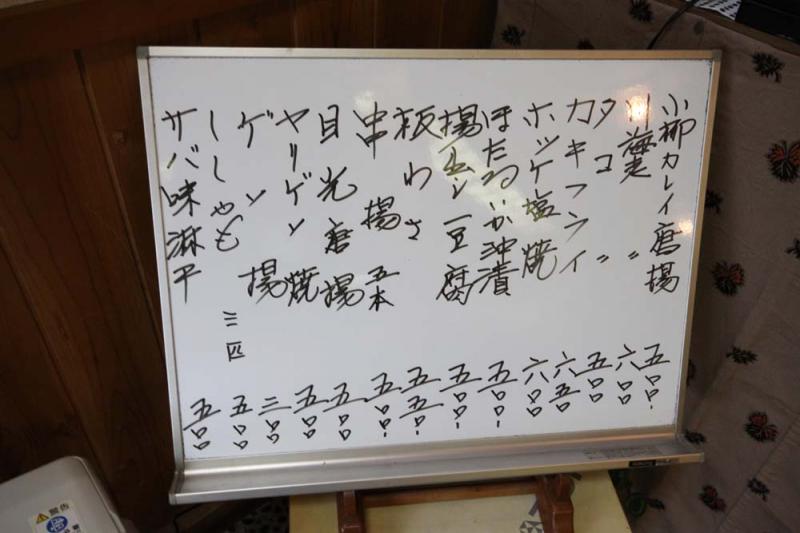 小柳カレイ唐揚 五〇〇-
川海老 〃 六〇〇
タコ 〃 五〇〇
カキフライ 六五〇
ホッケ塩焼 六〇〇
ほたるいか沖漬 五〇〇-
揚出し豆腐 五〇〇-
板わさ 五五〇-
串揚 五本 五〇〇-
目光唐揚 五〇〇
ヤリゲソ焼 五〇〇
ゲソ揚 三〇〇
ししゃも 三匹 五〇〇
サバ味淋干 五〇〇
警告